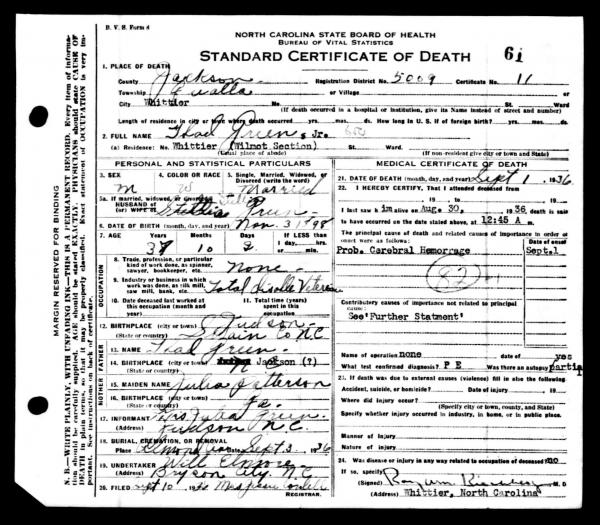 B. V. S. Form 8
NORTH CAROLINA STATE BOARD OF HEALTH
BUREAU OF VITAL STATISTICS
STANDARD CERTIFICATE OF DEATH
61
1. PLACE OF DEATH
County Jackson Registration District No. 5009 Certificate No. 11
Township Qualla or Village
City Whittier No. St. Ward
(If death occurred in a hospital or institution, give its Name instead of street and number)
Length of residence in city or town where death occurred yrs. mos. ds. How long in U. S. if of foreign birth? yrs. mos. ds.
2. FULL NAME Thad Green, Jr.
(a) Residence: No. Whittier (Wilmot Section) St. Ward.
(Usual place of abode) (If non-resident give city or town and State)
PERSONAL AND STATISTICAL PARTICULARS
3. SEX
M
4. COLOR OR RACE
W
5. Single, Married, Widowed, or Divorced
Married
5a. If married, widowed, or divorced
HUSBAND of
(or) WIFE of Green
6. DATE OF BIRTH (month, day, and year) Nov. 3, 1898
7. AGE Years Months Days If LESS than 1 day, hrs. or min.
37 10 2
OCCUPATION
8. Trade, profession, or particular kind of work done, as spinner, sawyer, bookkeeper, etc. None
9. Industry or business in which work was done, as silk mill, saw mill, bank, etc. Total Veteran
10. Date deceased last worked at this occupation (month and year)
11. Total time (years) spent in this occupation
12. BIRTHPLACE (city or town) Judson
(State or country) Swain Co N.C.
FATHER
13. NAME Thad Green
14. BIRTHPLACE (city or town) Jackson (?)
(State or country) N C
MOTHER
15. MAIDEN NAME Julia Patterson
16. BIRTHPLACE (city or town)
(State or country)
17. INFORMANT Mrs Julia Green
(Address) Judson N.C.
18. BURIAL, CREMATION, OR REMOVAL
Place Almond Date Sept 3, 1936
19. UNDERTAKER Will Elmore
(Address) Bryson City, N.C.
20. FILED Sept 10, 1936
REGISTRAR.
MEDICAL CERTIFICATE OF DEATH
21. DATE OF DEATH (month, day, and year) Sept 1, 1936
22. I HEREBY CERTIFY, That I attended deceased from
, 19 , to , 19
I last saw him alive on Aug. 30, 1936 death is said
to have occurred on the date stated above, at 12:45 A m.
The principal cause of death and related causes of importance in order of onset were as follows: Date of onset
Prob. Cerebral Hemorrage Sept.1
82
Contributory causes of importance not related to principal cause:
See'Further Statment'
Name of operation none date of yes
What test confirmed diagnosis? P E Was there an autopsy partial
23. If death was due to external causes (violence) fill in also the following:
Accident, suicide, or homicide? Date of injury , 19
Where did injury occur?
(Specify city or town, county, and State)
Specify whether injury occurred in industry, in home, or in public place.
Manner of Injury
Nature of Injury
24. Was disease or injury in any way related to occupation of deceased? no
If so, specify
(Signed) M. D.
(Address) Whittier, North Carolina
MARGIN RESERVED FOR BINDING
N. B.—WRITE PLAINLY, WITH UNFADING INK—THIS IS A PERMANENT RECORD. Every item of information should be carefully supplied. AGE should be stated EXACTLY. PHYSICIANS should state CAUSE OF DEATH in plain terms, so that it may be properly classified. Exact statement of OCCUPATION is very important. See instructions on back of certificate.